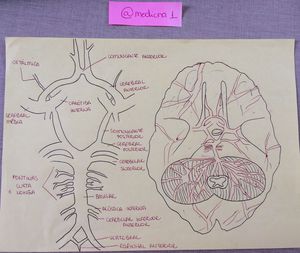 @medicina 1
COMUNICANTE ANTERIOR
OFTÁLMICA
CEREBRAL
ANTERIOR
CARÓTIDA
INTERNA
CEREBRAL
MÉDIA
COMUNICANTE
POSTERIOR
CEREBRAL
POSTERIOR
CEREBELAR
SUPERIOR
PONTINAS
CURTA
E LONGA
BASILAR
ACÚSTICA INTERNA
CEREBELAR INFERIOR
ANTERIOR
VERTEBRAL
ESPINHAL ANTERIOR